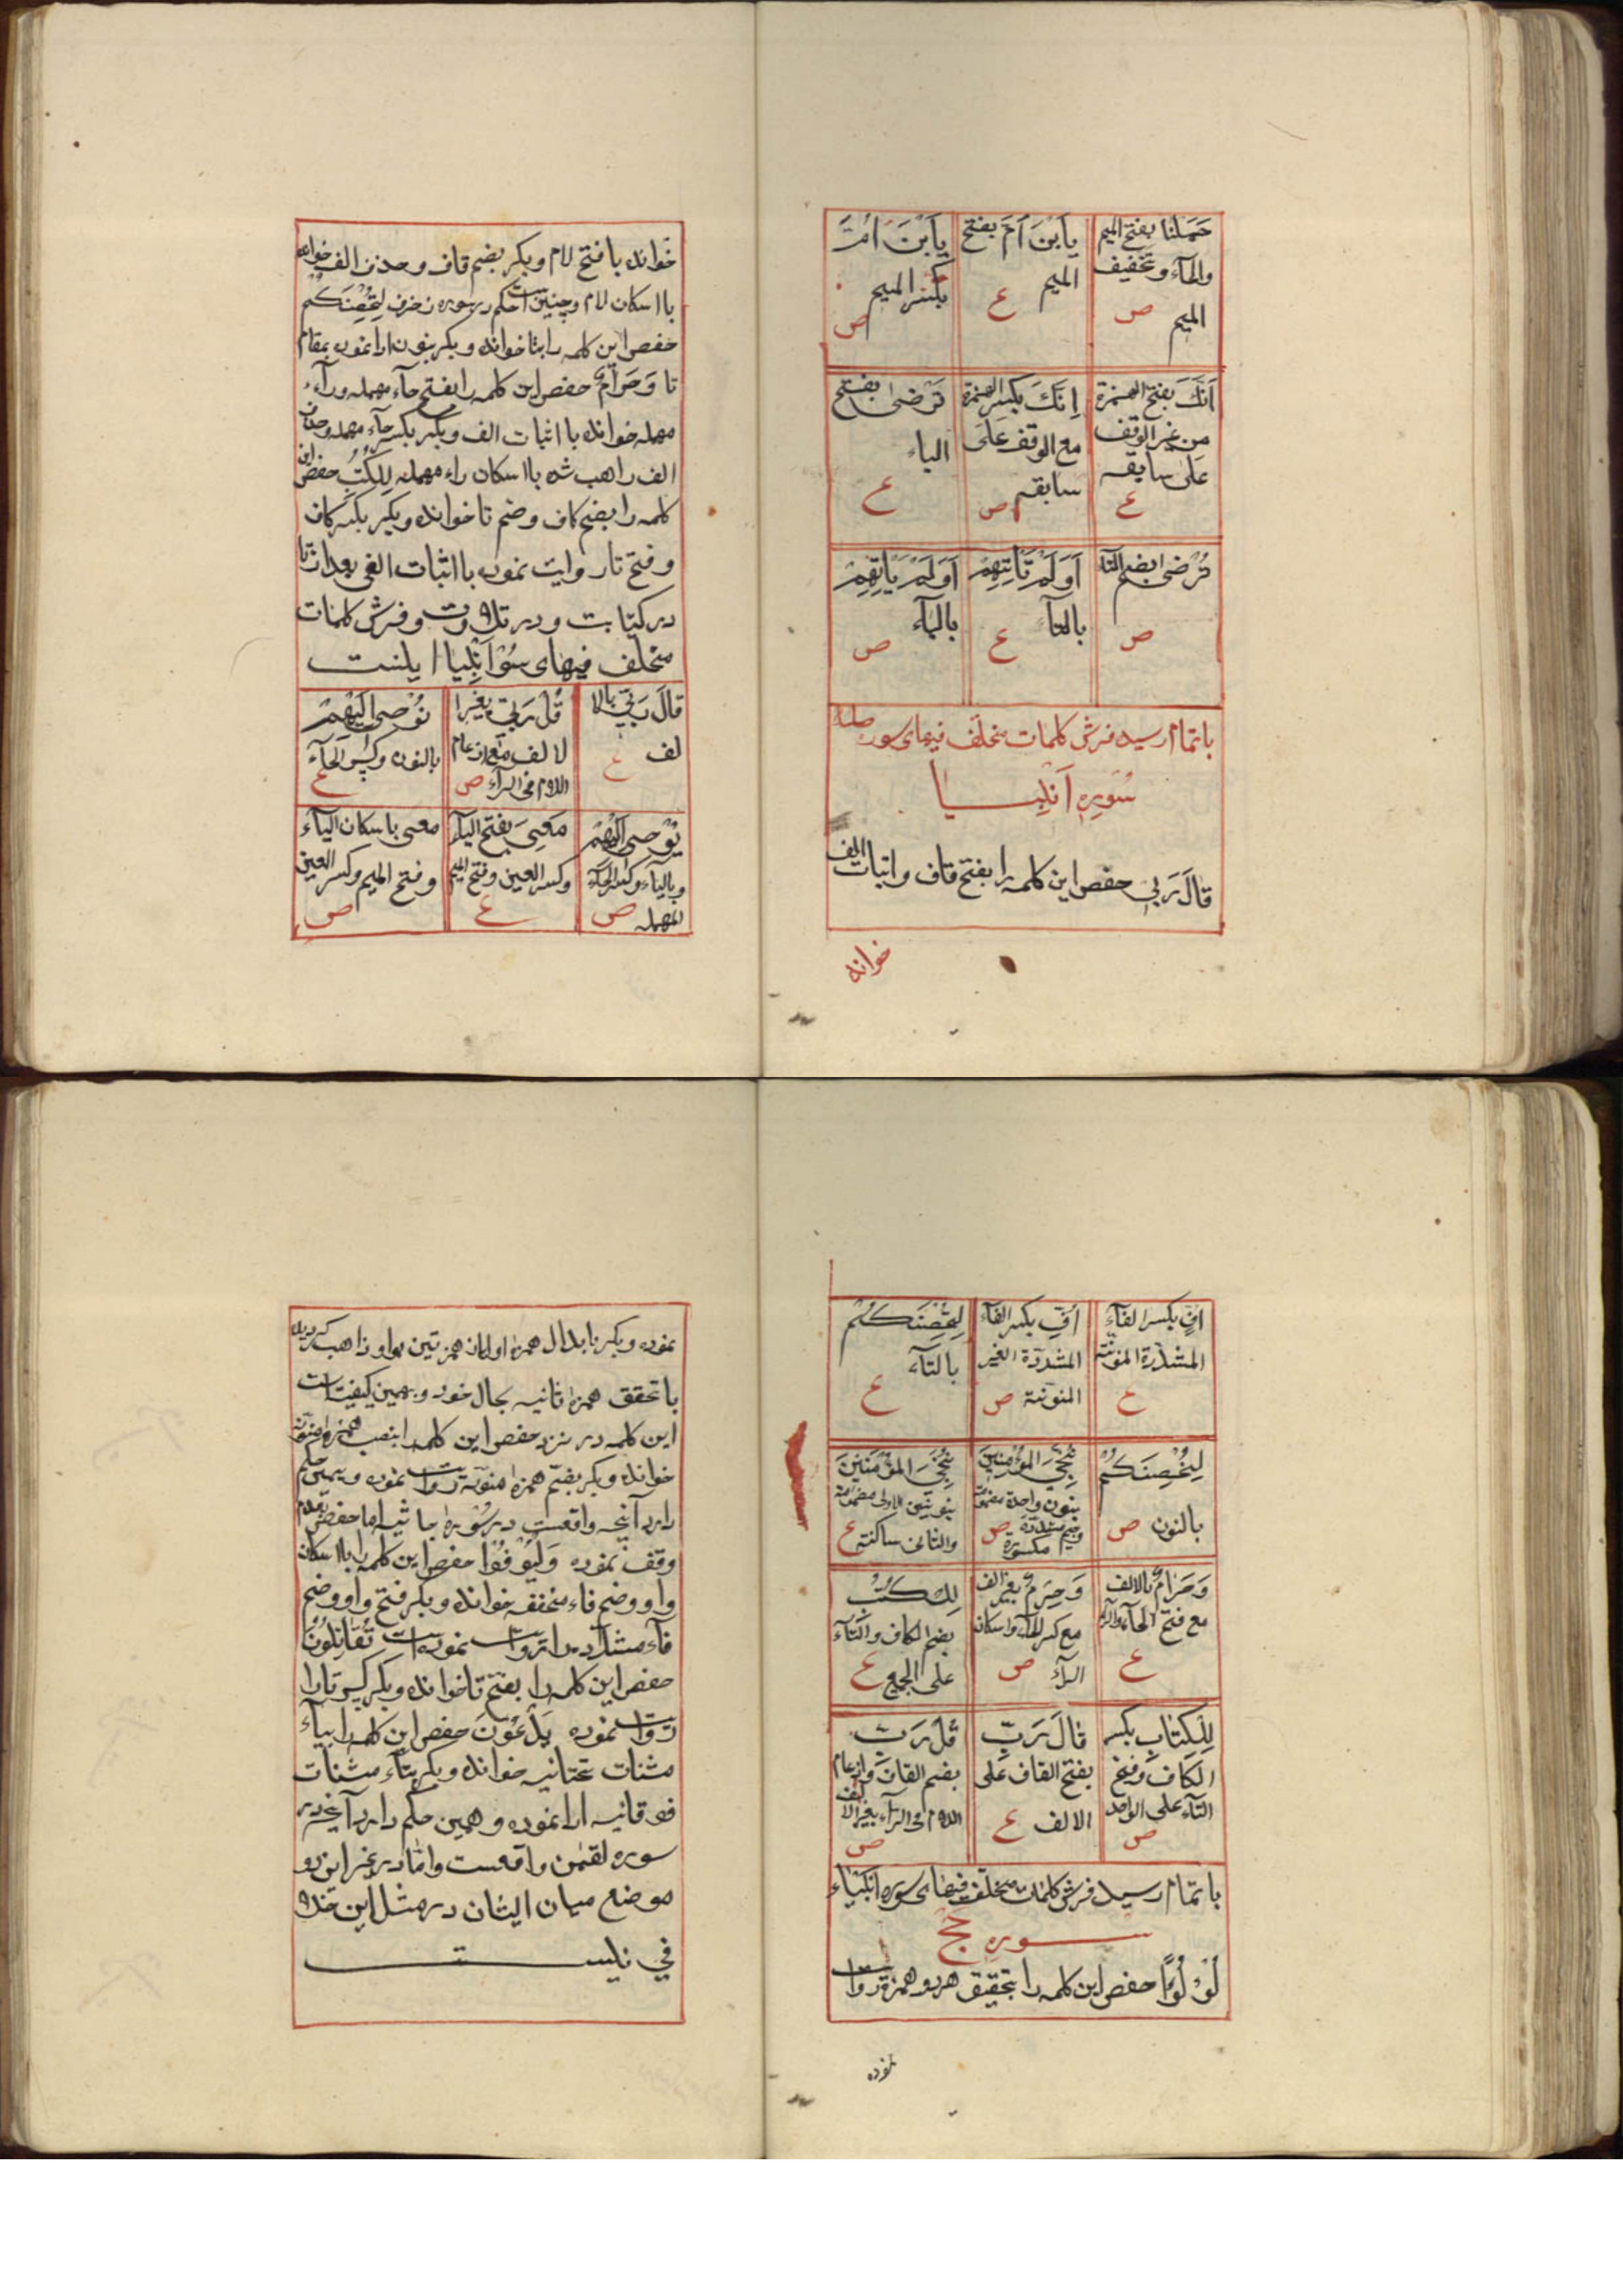 حَمَلْنا بفتح الميم
والحآء وتخفيف
الميم ص
يابْنَ اُمَّ بفتح
الميم ع
يابْنَ اُمِّ
بكسر الميم
ص
اَنَّكَ بفتح الهمزة
من غير الوقف
على سابقه
ع
اِنَّكَ بكسر الهمزة
مع الوقف على
سابقه ص
تَرْضى بفتح
التاء
ع
تُرْضى بضم التآء
ص
اَوَلَمْ تَأتِهِمْ
بالتآ ع
اَوَلَمْ يَأتِهِمْ
باليآء
ص
باتمام رسيد فرش كلمات مختلف فيهاى سوره طه
سُوره اَنبيــا
قالَ رَبى حفص اين كلمه را بفتح قاف واثبات الف
خوانده
خوانده با فتح لام وبكر بضم قاف وحذف الف خوانده
با اسكان لام وچنين است حكم در سوره زخرف لِتُحْصِنَكُمْ
حفص اين كلمه را بتا خوانده وبكر بنون ادا نموده بمقام
تا وَحَرَامٌ حفص اين كلمه را بفتح حآء مهمله ورآء
مهمله خوانده با اثبات الف وبكر بكسر حآء مهمله وحذف
الف راهب شده با اسكان راء مهمله لِلكُتُبِ حفص اين
كلمه را بضم كاف وضم تا خوانده وبكر بكسر كاف
وفتح تا روايت نموده با اثبات الفى بعد از تا
در كتابت ودر تلاوت وفرش كلمات
مختلف فيهاى سُورَه اَنبِيا اينست
قالَ رَبّى بالا
لف ع
قُلْ رَبّى بغير ا
لالف مع ادغام
اللام فى الرآء ص
نُوْحِى اِلَيْهِمْ
بالنون وكسر الحآء
ع
يُوْحى اِلَيْهِمْ
وبالياء وفتح الحآء
المهمله ص
مَعِىَ بفتح اليآء
وكسر العين وفتح الميم
ع
معى باسكان اليآء
وفتح الميم وكسر العين
ص
اُفٍّ بكسر الفآء
المشدّدة المنونة
ع
اُفِّ بكسر الفآء
المشددة الغير
المنونة ص
لِتُحْصِنَكُمْ
بالتآء
ع
لِنُحْصِنَكُمْ
بالنون ص
نُجِّى المؤمنين
بنون واحدة مضمومة
وجيم مشددة
مكسورة ص
نُنْجِى المُؤْمِنِينَ
بنونين الاولى مضمومة
والثانى ساكنة ع
وَحَرَامٌ بالالف
مع فتح الحآء والرآء
ع
وَحِرْمٌ بغير الف
مع كسر الحآء واسكان
الرآء ص
لِلكُتُبِ
بضم الكاف والتآء
على الجمع ع
لِلكِتَابِ بكسر
الكاف وفتح
التآء على الواحد
ص
قالَ رَبِّ
بفتح القاف على
الالف ع
قُلْ رَبِّ
بضم القاف وادغام
اللام فى الرآء بغير الالف
ص
باتمام رسيد فرش كلمات مختلف فيهاى سوره انبياء
ســوره حج
لُؤْلُؤًا حفص اين كلمه را بتحقيق هر دو همزه روايت
نموده
نموده وبكر با بدال همزه اولى از همزتين بواو ذاهب گرديده
با تحقق همزه ثانيه بحال خود وهمين كيفيت است
اين كلمه در نزد حفص اين كلمه را بنصب همزه منونه
خوانده وبكر بضم همزه منونه روايت نموده وهمين حكم
دارد آنچه واقعست در سُوره جاثيه اما حفص بعدم
وقف نموده وَلْيُوْفُوْا حفص اين كلمه را با اسكان
واو وضم فاء مخففه خوانده وبكر فتح واو وضم
فآء مشدّده را روايت نموده است تُقَاتِلُوْنَ
حفص اين كلمه را بفتح تا خوانده وبكر كسر تا را
روايت نموده يَدْعُوْنَ حفص اين كلمه را بيآء
مثنات تحتانيه خوانده وبكر بتآء مثنات
فوقانيه ادا نموده وهمين حكم دارد آنچه در
سوره لقمن واقعست واما در غير اين دو
موضع ميان ايشان در مثل اين خلا
في نيســـت